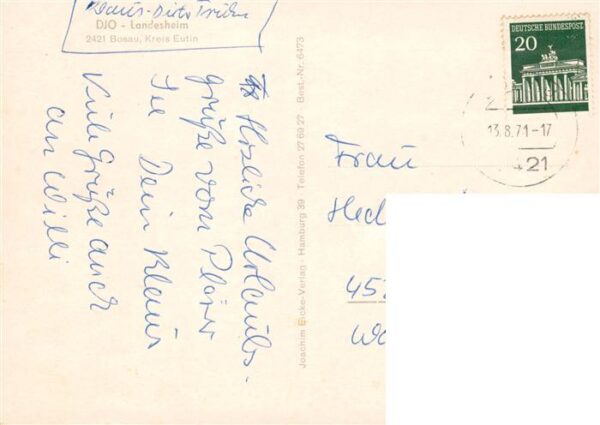 Klaus-Dieter
DJO - Landesheim
2421 Bosau, Kreis Eutin
Herzliche Urlaubs-
grüße vom Plöner
See Dein Klaus
Viele Grüße auch
an Willi
Joachim Eicke-Verlag · Hamburg 39 Telefon 27 69 27 Best.-Nr. 6473
DEUTSCHE BUNDESPOST
20
13.8.71-17
21
Frau
Hed
452